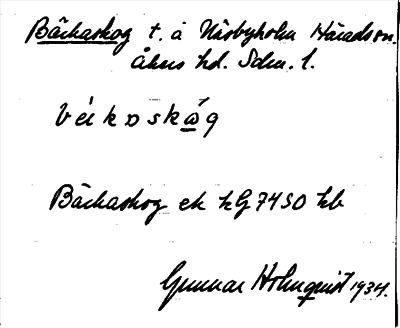 Bäckaskog t. å Näsbyholm Häradson.
Åkers hd. Sdm. l.
béikɔskåg
Bäckaskog ek hG 7450 hb
Gunnar Holmquist 1934.